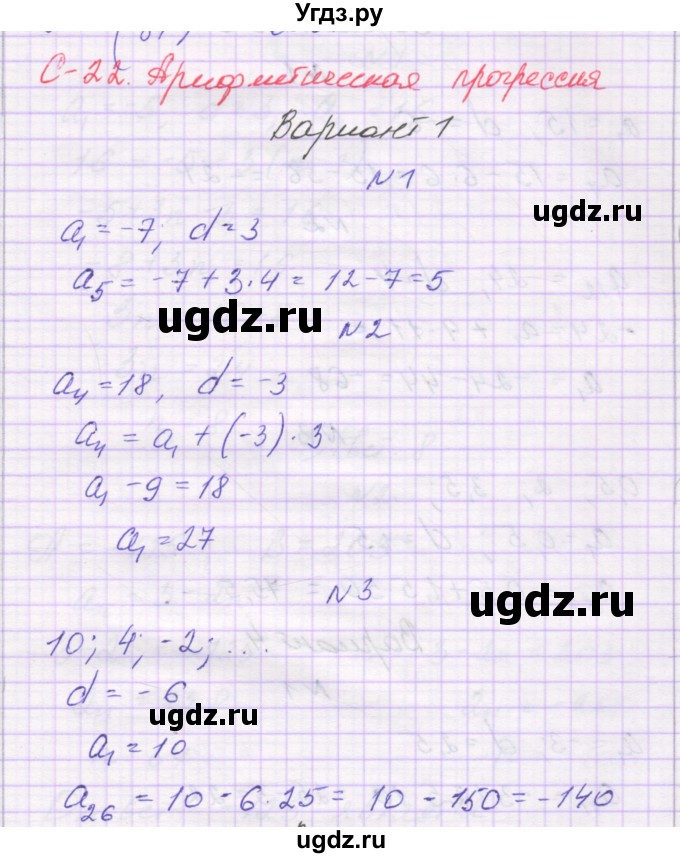 Угдз.ру
С-22. Арифметическая прогрессия
Вариант 1
N1
ugdz.ru
a₁ = -7; d = 3
a₅ = -7 + 3·4 = 12 - 7 = 5
ugdz.ru
N2
a₄ = 18, d = -3
a₄ = a₁ + (-3)·3
a₁ - 9 = 18
a₁ = 27
N3
ugdz.ru
10; 4; -2; ...
d = -6
ugdz.ru
a₁ = 10
a₂₆ = 10 - 6·25 = 10 - 150 = -140
ugdz.ru